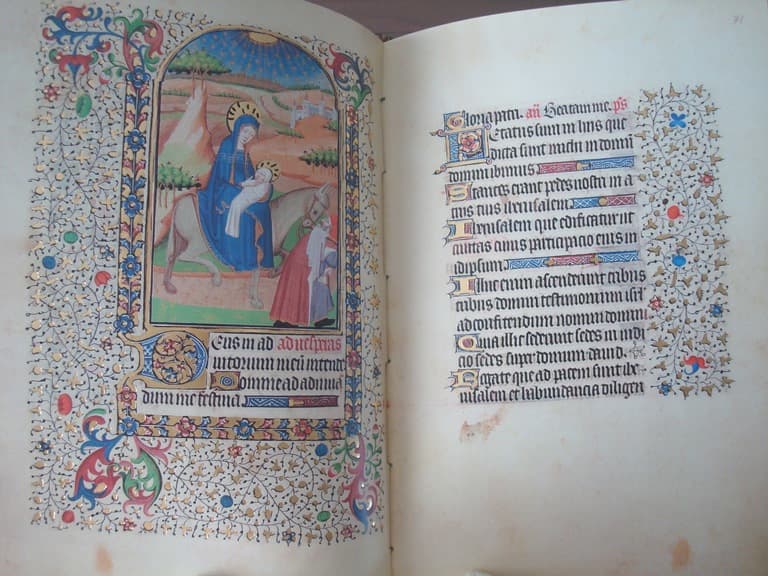 Eus in ad ad uesperas
iutorium meū intend
Domine ad adiuuā
dum me festina.
71
Gloria patri. añ Beatam me. ps
Letatus sum in hijs que
dicta sunt michi in domū
domini ibimus
Stantes erant pedes nostri in a
trijs tuis iherusalem
Iherusalem que edificatur ut
ciuitas cuius participacio eius in
idipsum
Illuc enim ascenderunt tribus
tribus domini testimonium isrl
ad confitendum nomini domini
Quia illic sederunt sedes in iudi
cio sedes super domum dauid.
Rogate que ad pacem sunt ihe
rusalem et habundancia diligen